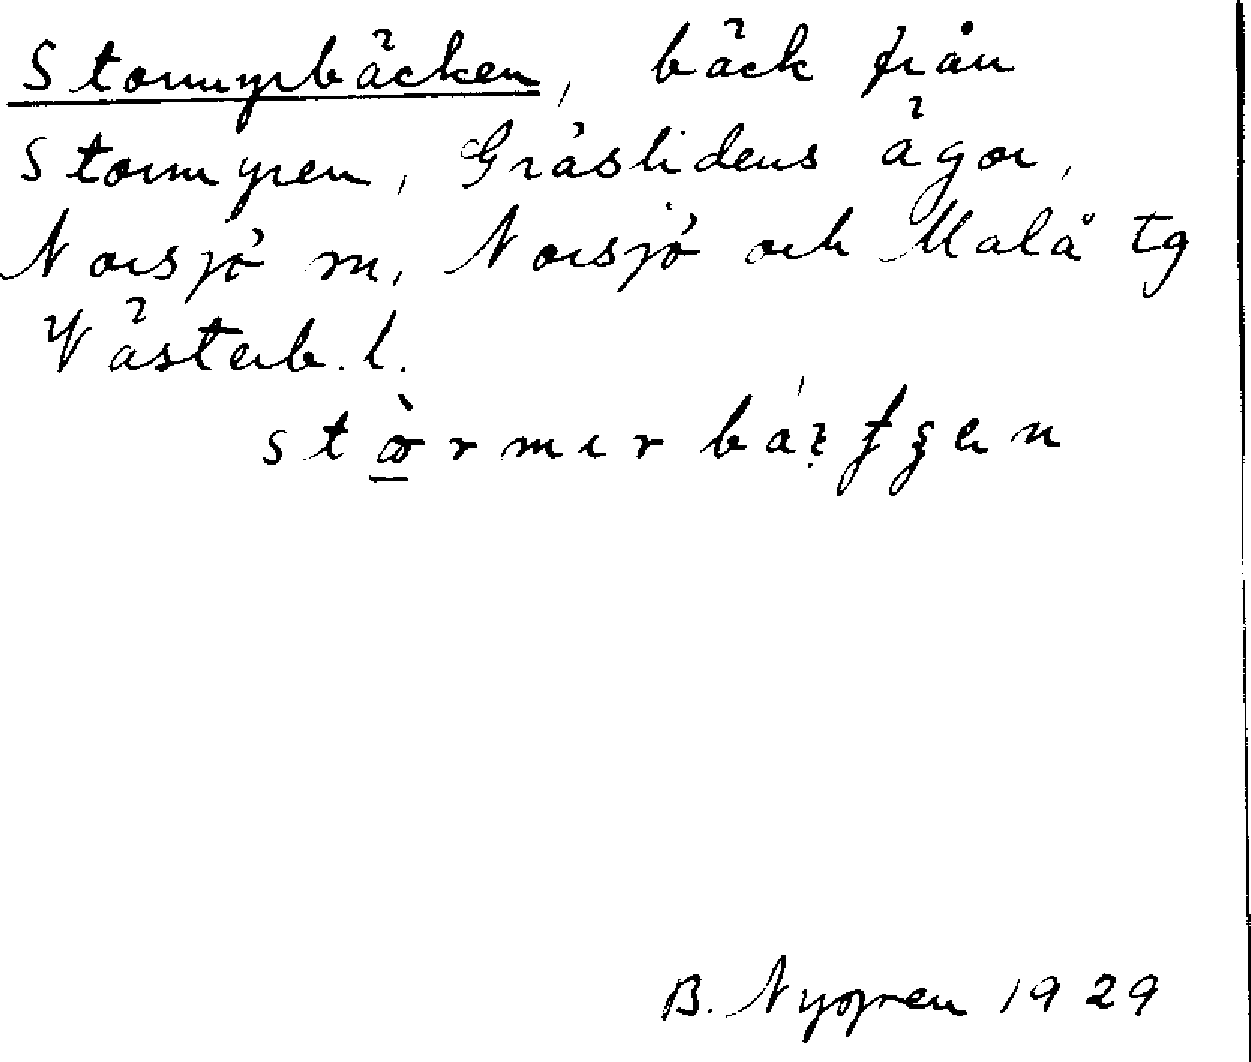 Stormyrbäcken, bäck från
Stormyren, Gråslidens ägor,
Norsjö sn, Norsjö och Malå tg
Västerb. l.
B. Nygren 1929